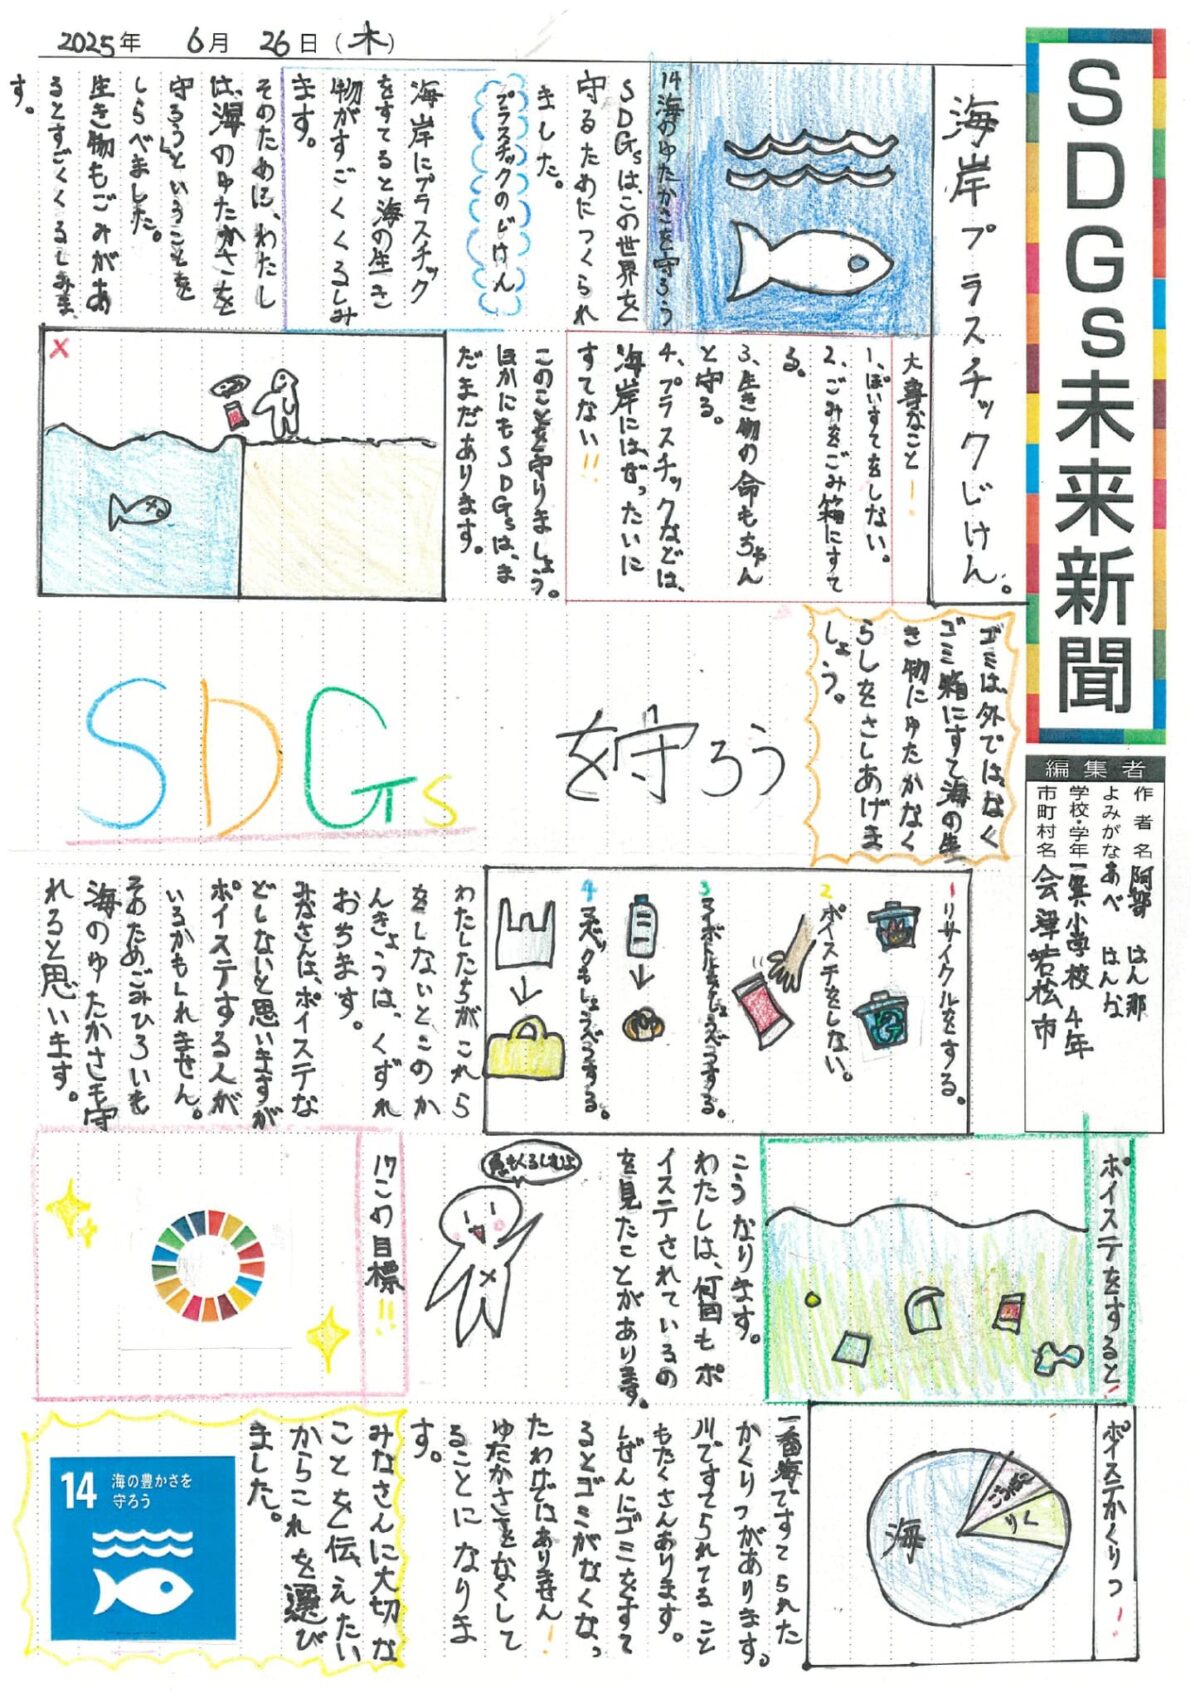 2025年 6月 26日(木)
SDGs未来新聞
編集者
作者名 阿部 はん那
よみがな あべ はんな
学校・学年 一箕小学校 4年
市町村名 会津若松市
海岸プラスチックじけん。
14海のゆたかさを守ろう
SDGsは、この世界を
守るためにつくられ
ました。
プラスチックのじけん
海岸にプラスチック
をすてると海の生き
物がすごくくるしみ
ます。
そのために、わたし
は、「海のゆたかさを
守ろう」ということを
しらべました。
生き物もごみがあ
るとすごくくるしみま
す。
大事なこと!
1、ぽいすてをしない。
2、ごみをごみ箱にすて
る。
3、生き物の命もちゃん
と守る。
4、プラスチックなどは、
海岸にはぜったいに
すてない!!
このことを守りましょう。
ほかにもSDGsは、ま
だまだあります。
×
ゴミは、外ではなく
ゴミ箱にすて海の生
き物にゆたかなく
らしをさしあげま
しょう。
SDGsを守ろう
1 リサイクルをする。
2 ポイステをしない。
3 マイボトルをしようする。
4
わたしたちがこれら
をしないとこのか
んきょうは、くずれ
おちます。
みなさんは、ポイステな
どしないと思いますが
ポイステする人が
いるかもしれません。
そのためごみひろいも
海のゆたかさも守
れると思います。
ポイステをすると!
こうなります。
わたしは、何回もポ
イステされているの
を見たことがあります。
魚もくるしむよ
17この目標!!
ポイステかくりつ!
海
りく
一番海ですてられた
かくりつがあります。
川ですてられてること
もたくさんあります。
しぜんにゴミをすて
るとゴミがなくなっ
たわけではありません!
ゆたかさをなくして
ることになりま
す。
みなさんに大切な
ことを伝えたい
からこれを選び
ました。
14 海の豊かさを
守ろう